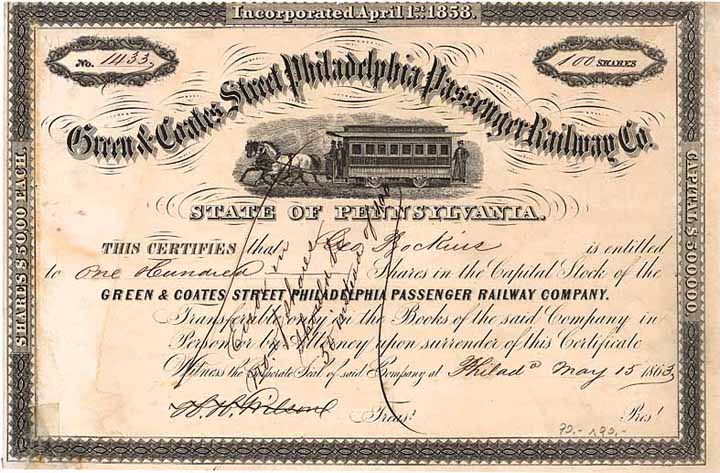 Incorporated April 1st 1858.
No. 1433.
100 SHARES
Green & Coates Street Philadelphia Passenger Railway Co.
SHARES $50.00 EACH.
CAPITAL $500.000.
STATE OF PENNSYLVANIA.
THIS CERTIFIES that Geo Rockius is entitled
to One Hundred Shares in the Capital Stock of the
GREEN & COATES STREET PHILADELPHIA PASSENGER RAILWAY COMPANY.
Transferable only in the Books of the said Company in
Person or by Attorney upon surrender of this Certificate
Witness the Corporate Seal of said Company at Philada May 15 1863
W. W. Gilson Treas. Pres.
90,- 190,-